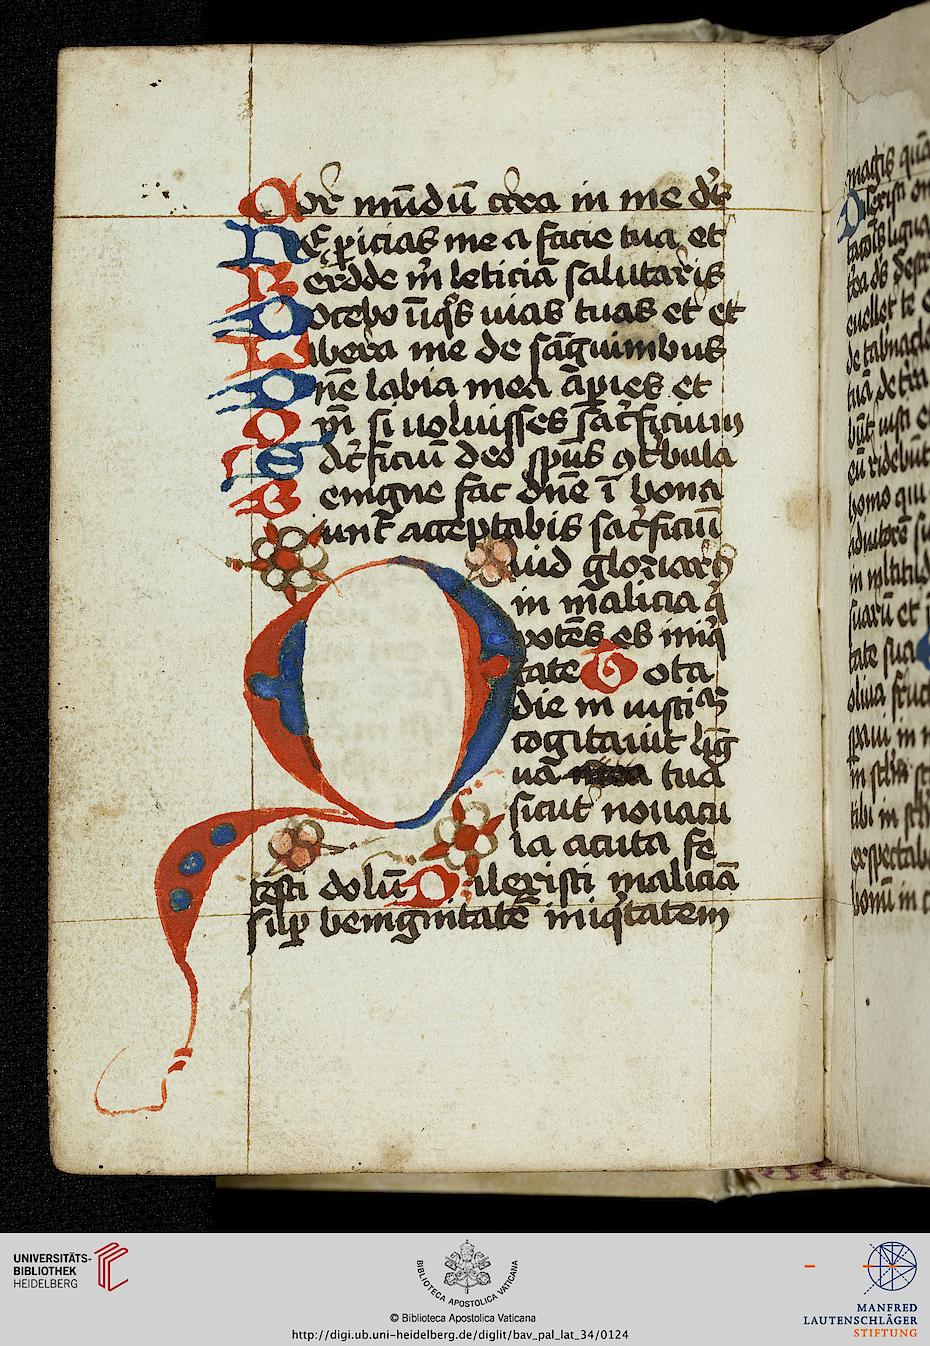 Cor mūdū crea in me ds
Ne ꝓicias me a facie tua et
Redde m̄ leticiā salutaris
Docebo īiqs uias tuas et
Libera me de sāguinibus
Dne labia mea āpies et
Qm̄ si uoluisses sacficium
Sacficiū deo spūs ꝯtbula
Benigne fac dn̄e ī bona
acceptabis sacficiū
Quid gloriaris
in malicia q̄
potēs es iniq̄
tate Tota
die in iusticiā
cogitauit līg
uā tua
sicut nouacu
la acuta fe
cisti dolū Dilexisti maliciā
sup benignitatē iniqtatem
magis quā
Dilexisti om
euellet te
de tabnaclo
homo qui
suarū et
tate sua
oliua fruct
bonū in c
UNIVERSITÄTS-
BIBLIOTHEK
HEIDELBERG
BIBLIOTECA APOSTOLICA VATICANA
© Biblioteca Apostolica Vaticana
http://digi.ub.uni-heidelberg.de/diglit/bav_pal_lat_34/0124
MANFRED
LAUTENSCHLÄGER
STIFTUNG